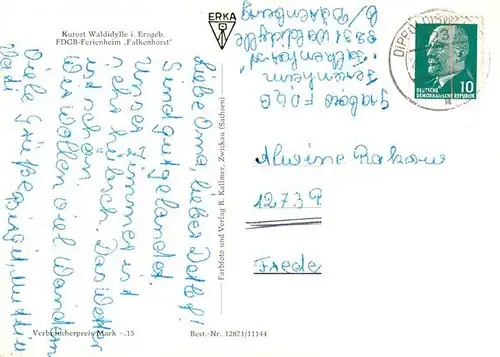 Kurort Waldidylle i. Erzgeb.
FDGB-Ferienheim „Falkenhorst"
ERKA
Liebe Oma, lieber Detlef!
Sind gut gelandet.
Unser Zimmer ist
recht hübsch. Das Wetter
ist schön
Wir wollen viel wandern
Viele Grüße
Verbraucherpreis Mark -,15
Best.-Nr. 12871/11144
Farbfoto und Verlag R. Kallmer, Zwickau (Sachsen)
FDGB
Ferienheim
„Falkenhorst"
8231 Waldidylle
DIPPOLDIS
DEUTSCHE
DEMOKRATISCHE REPUBLIK
10
Alwine Rakow
1273 P
Frede